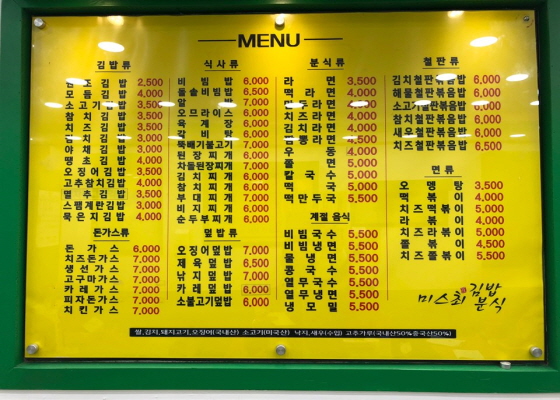 MENU
김밥류
원조김밥 2,500
모듬김밥 4,000
소고기김밥 3,500
참치김밥 3,500
치즈김밥 3,500
김치김밥 3,000
야채김밥 3,000
땡초김밥 4,000
오징어김밥 3,500
고추참치김밥 4,000
멸추김밥 3,500
스팸계란김밥 3,000
묵은지김밥 4,000
돈가스류
돈가스 6,000
치즈돈가스 7,000
생선가스 7,000
고구마가스 7,000
카레가스 7,000
피자돈가스 7,000
치킨가스 7,000
식사류
비빔밥 6,000
돌솥비빔밥 6,500
알밥 7,000
오므라이스 6,000
육계장 6,000
갈비탕 6,000
뚝배기불고기 7,000
된장찌개 6,000
차돌된장찌개 7,000
김치찌개 6,000
참치찌개 6,000
부대찌개 7,000
비지찌개 6,000
순두부찌개 6,000
덮밥류
오징어덮밥 7,000
제육덮밥 6,500
낙지덮밥 7,000
카레덮밥 6,000
소불고기덮밥 6,000
분식류
라면 3,500
떡라면 4,000
만두라면 4,000
치즈라면 4,000
김치라면 4,000
짬뽕라면 4,500
우동 4,000
쫄면 5,000
칼국수 5,000
떡국 5,000
떡만두국 5,500
계절음식
비빔국수 5,500
비빔냉면 5,500
물냉면 5,500
콩국수 5,500
열무국수 5,500
열무냉면 5,500
냉모밀 5,500
철판류
김치철판볶음밥 6,000
해물철판볶음밥 6,000
소고기철판볶음밥 6,000
참치철판볶음밥 6,000
새우철판볶음밥 6,000
치즈철판볶음밥 6,500
면류
오뎅탕 3,500
떡볶이 4,000
치즈떡볶이 5,000
라볶이 4,000
치즈라볶이 5,000
쫄볶이 4,500
치즈쫄볶이 5,500
미스최 김밥
분식
쌀,김치,돼지고기,오징어(국내산) 소고기(미국산) 낙지,새우(수입) 고추가루(국내산50%중국산50%)